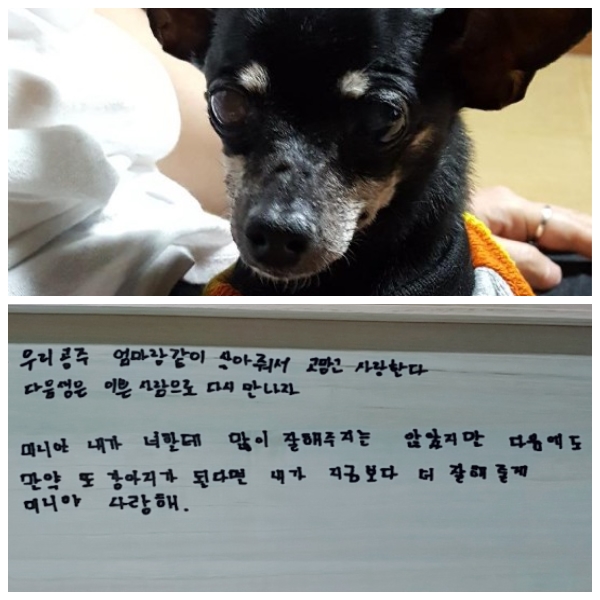 우리공주 엄마랑같이 살아줘서 고맙고 사랑한다
다음생은 이쁜 사람으로 다시 만나자
미니야 내가 너한테 많이 잘해주지는 않았지만 다음에도
만약 또 강아지가 된다면 내가 지금보다 더 잘해 줄게
미니야 사랑해.